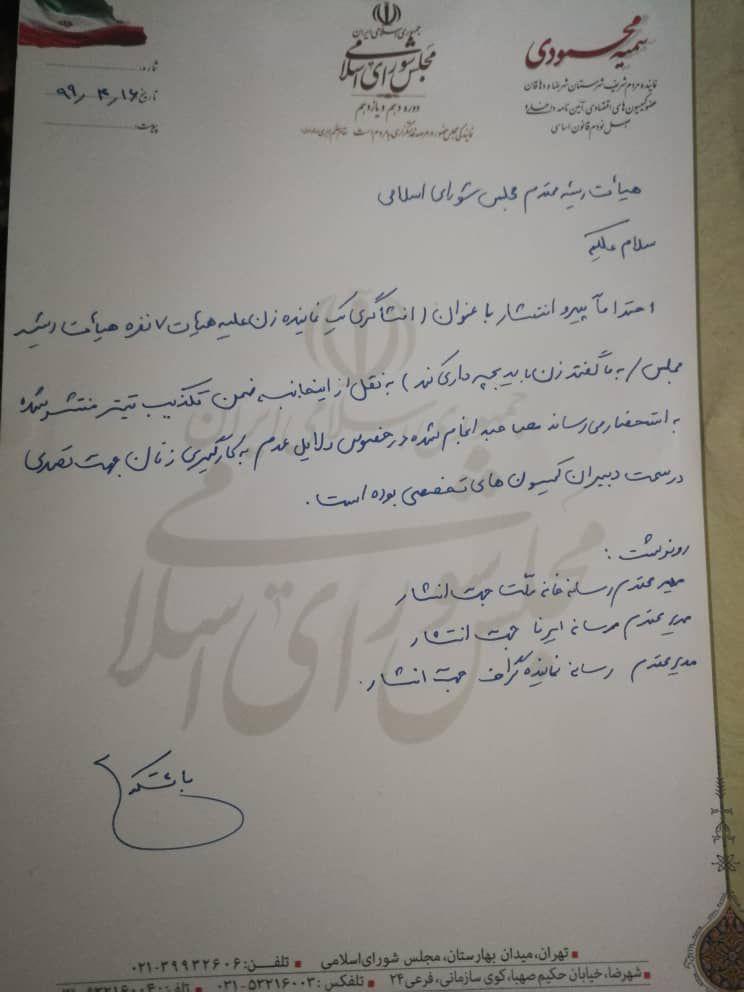 جمهوری اسلامی ایران
مجلس شورای اسلامی
دوره دهم و یازدهم
سمیه محمودی
نماینده مردم شریف شهرستان شهرضا و دهاقان
عضو کمیسیون های اقتصادی، آیین نامه داخلی و
اصل نودم قانون اساسی
شماره:
تاریخ: ۹۹٫۴٫۱۶
پیوست:
هیأت رئیسه محترم مجلس شورای اسلامی
سلام علیکم
احتراماً پیرو انتشار با عنوان (افشاگری یک نماینده زن علیه هیات ۷ نفره هیأت رئیسه
مجلس / به ما گفتند زن باید بچه داری کند) به نقل از اینجانب ضمن تکذیب تیتر منتشر شده
به استحضار می رساند مصاحبه انجام شده در خصوص دلایل عدم به کارگیری زنان جهت تصدی
در سمت دبیران کمیسیون های تخصصی بوده است.
رونوشت:
مدیر محترم رسانه خانه ملت جهت انتشار
مدیر محترم رسانه ایرنا جهت انتشار
مدیر محترم رسانه نماینده گراف جهت انتشار.
با تشکر
تهران، میدان بهارستان، مجلس شورای اسلامی ▪ تلفن: ۰۲۱-۳۹۹۳۲۶۰۶
شهرضا، خیابان حکیم صهبا، کوی سازمانی، فرعی ۲۴ ▪ تلفکس: ۰۲۱-۵۳۲۱۶۰۰۳ ▪ تلفن: